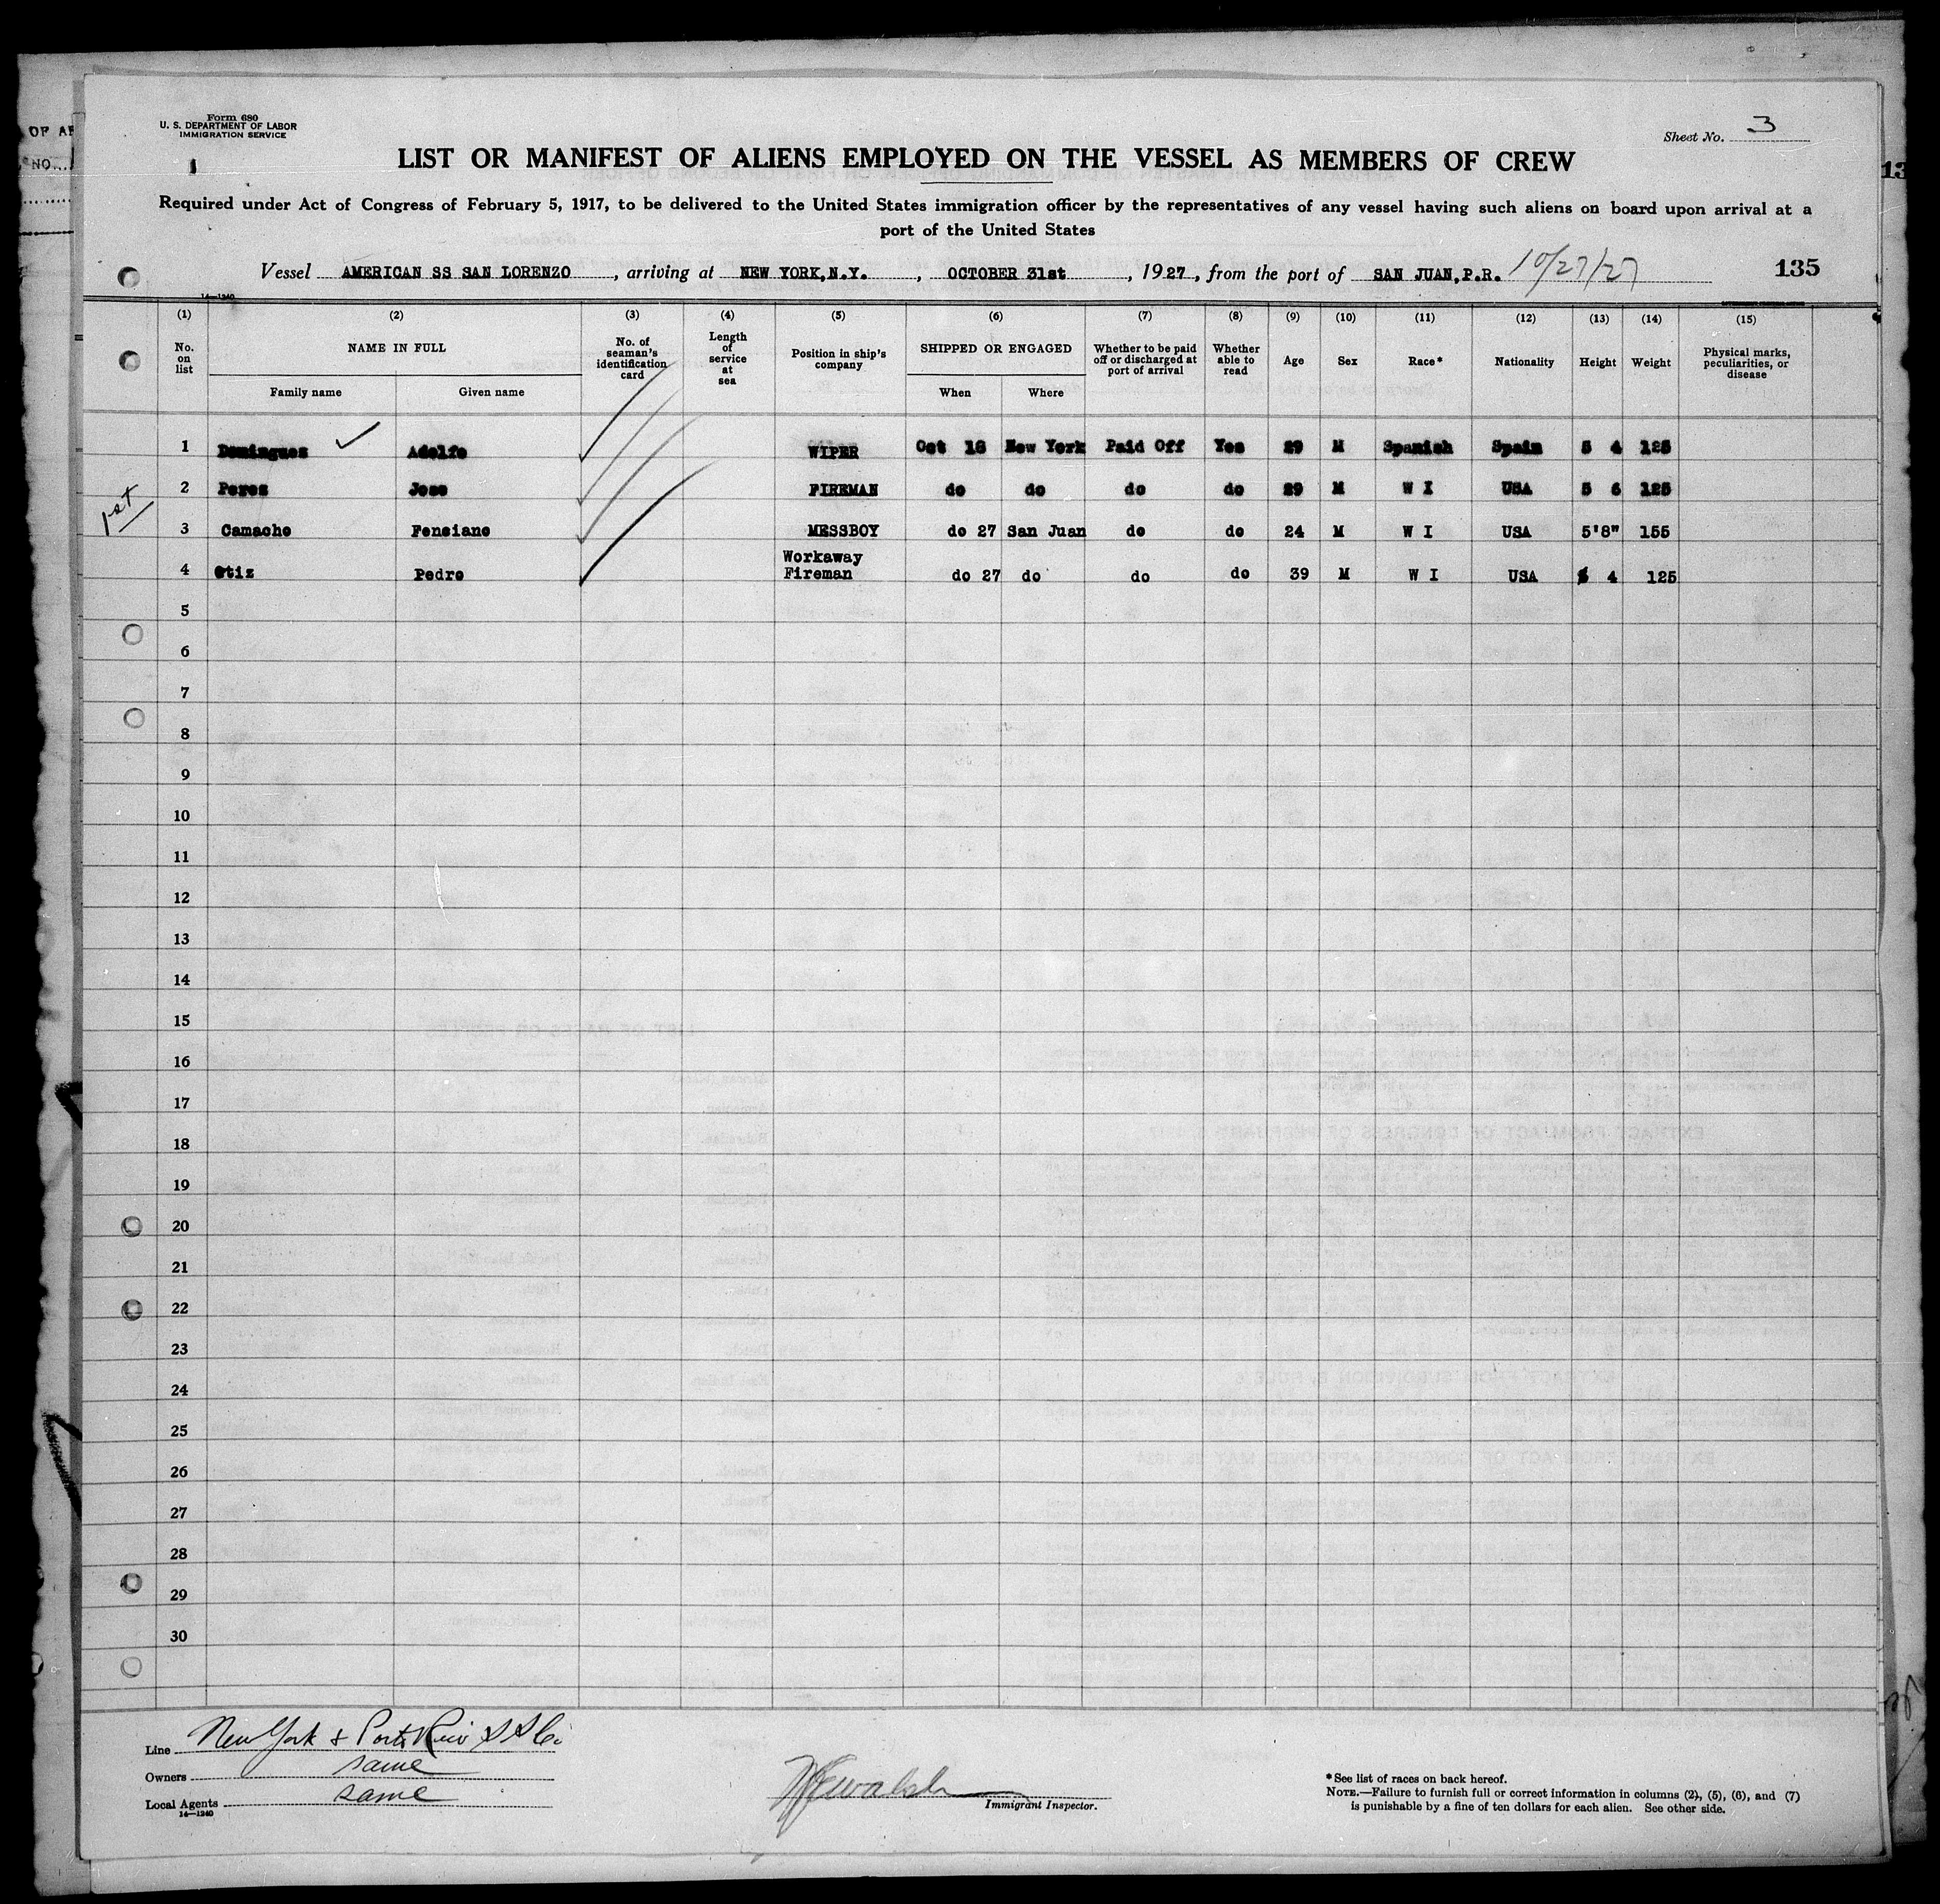 Form 680
U. S. DEPARTMENT OF LABOR
IMMIGRATION SERVICE
Sheet No. 3
LIST OR MANIFEST OF ALIENS EMPLOYED ON THE VESSEL AS MEMBERS OF CREW
Required under Act of Congress of February 5, 1917, to be delivered to the United States immigration officer by the representatives of any vessel having such aliens on board upon arrival at a
port of the United States
Vessel AMERICAN SS SAN LORENZO, arriving at NEW YORK,N.Y., OCTOBER 31st, 1927, from the port of SAN JUAN,P.R. 10/27/27 135
14—1240
(1) (2) (3) (4) (5) (6) (7) (8) (9) (10) (11) (12) (13) (14) (15)
No. on list NAME IN FULL Family name Given name No. of seaman's identification card Length of service at sea Position in ship's company SHIPPED OR ENGAGED When Where Whether to be paid off or discharged at port of arrival Whether able to read Age Sex Race* Nationality Height Weight Physical marks, peculiarities, or disease
1 Domingues Adolfo WIPER Oct 18 New York Paid Off Yes 29 M Spanish Spain 5 4 125
2 Perez Jose FIREMAN do do do do 29 M W I USA 5 6 125
1st
3 Camacho Fensiano MESSBOY do 27 San Juan do do 24 M W I USA 5'8" 155
4 Otiz Pedro Workaway Fireman do 27 do do do 39 M W I USA 5 4 125
5
6
7
8
9
10
11
12
13
14
15
16
17
18
19
20
21
22
23
24
25
26
27
28
29
30
Line New York & Porto Rico S S Co.
Owners same
Local Agents same
14—1240
Walsh
Immigrant Inspector.
*See list of races on back hereof.
NOTE.—Failure to furnish full or correct information in columns (2), (5), (6), and (7)
is punishable by a fine of ten dollars for each alien. See other side.